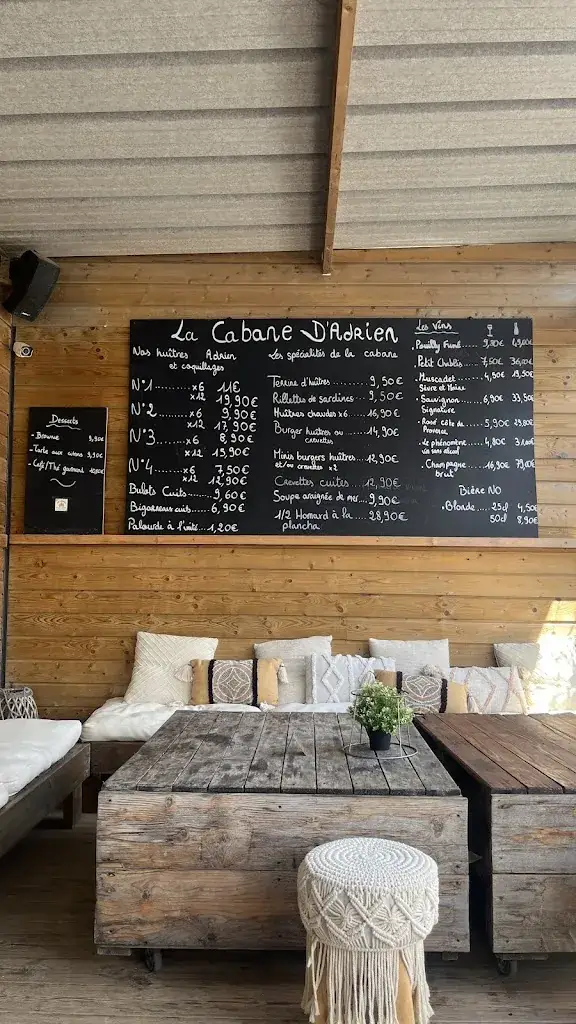 La Cabane D'Adrien
Nos huîtres Adrien
et coquillages
N°1 ........ x6 11€
x12 19,90€
N°2 ........ x6 9,90€
x12 17,90€
N°3 ........ x6 8,90€
x12 15,90€
N°4 ........ x6 7,50€
x12 12,90€
Bulots Cuits ..... 9,60€
Bigorneaux cuits ..... 6,90€
Palourde à l'unité ... 1,20€
Les spécialités de la cabane
Terrine d'huîtres ......... 9,50€
Rillettes de sardines .. 9,50€
Huîtres chaudes x6 ..... 16,90€
Burger huîtres ou ...... 14,90€
crevettes
Minis burgers huîtres .... 12,90€
et/ou crevettes x2
Crevettes cuites ...... 12,90€
Soupe araignée de mer .. 9,90€
1/2 Homard à la ..... 28,90€
plancha
Les Vins
. Pouilly Fumé ..... 9,90€
. Petit Chablis ..... 7,50€ 36,00€
. Muscadet ..... 4,90€ 19,50€
Sèvre et Maine
. Sauvignon ..... 6,90€ 33,50€
Signature
. Rosé Côte de ... 5,90€ 25,80€
Provence
. Le phénomène ... 4,80€
sans alcool
. Champagne .... 16,90€
brut
Bière NO
. Blonde ... 25cl 4,50€
50cl 8,90€
Desserts
- Brownie
- Tarte aux citrons
- Café/Thé gourmand